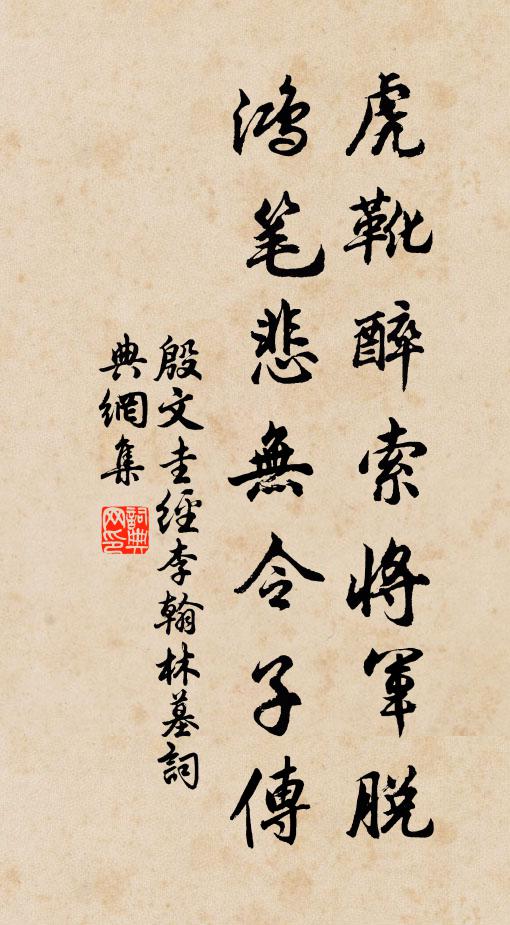 虎靴醉索將軍脱
鴻笔悲無令子傳
殷文圭經李翰林墓詞
典網集
詞典網印